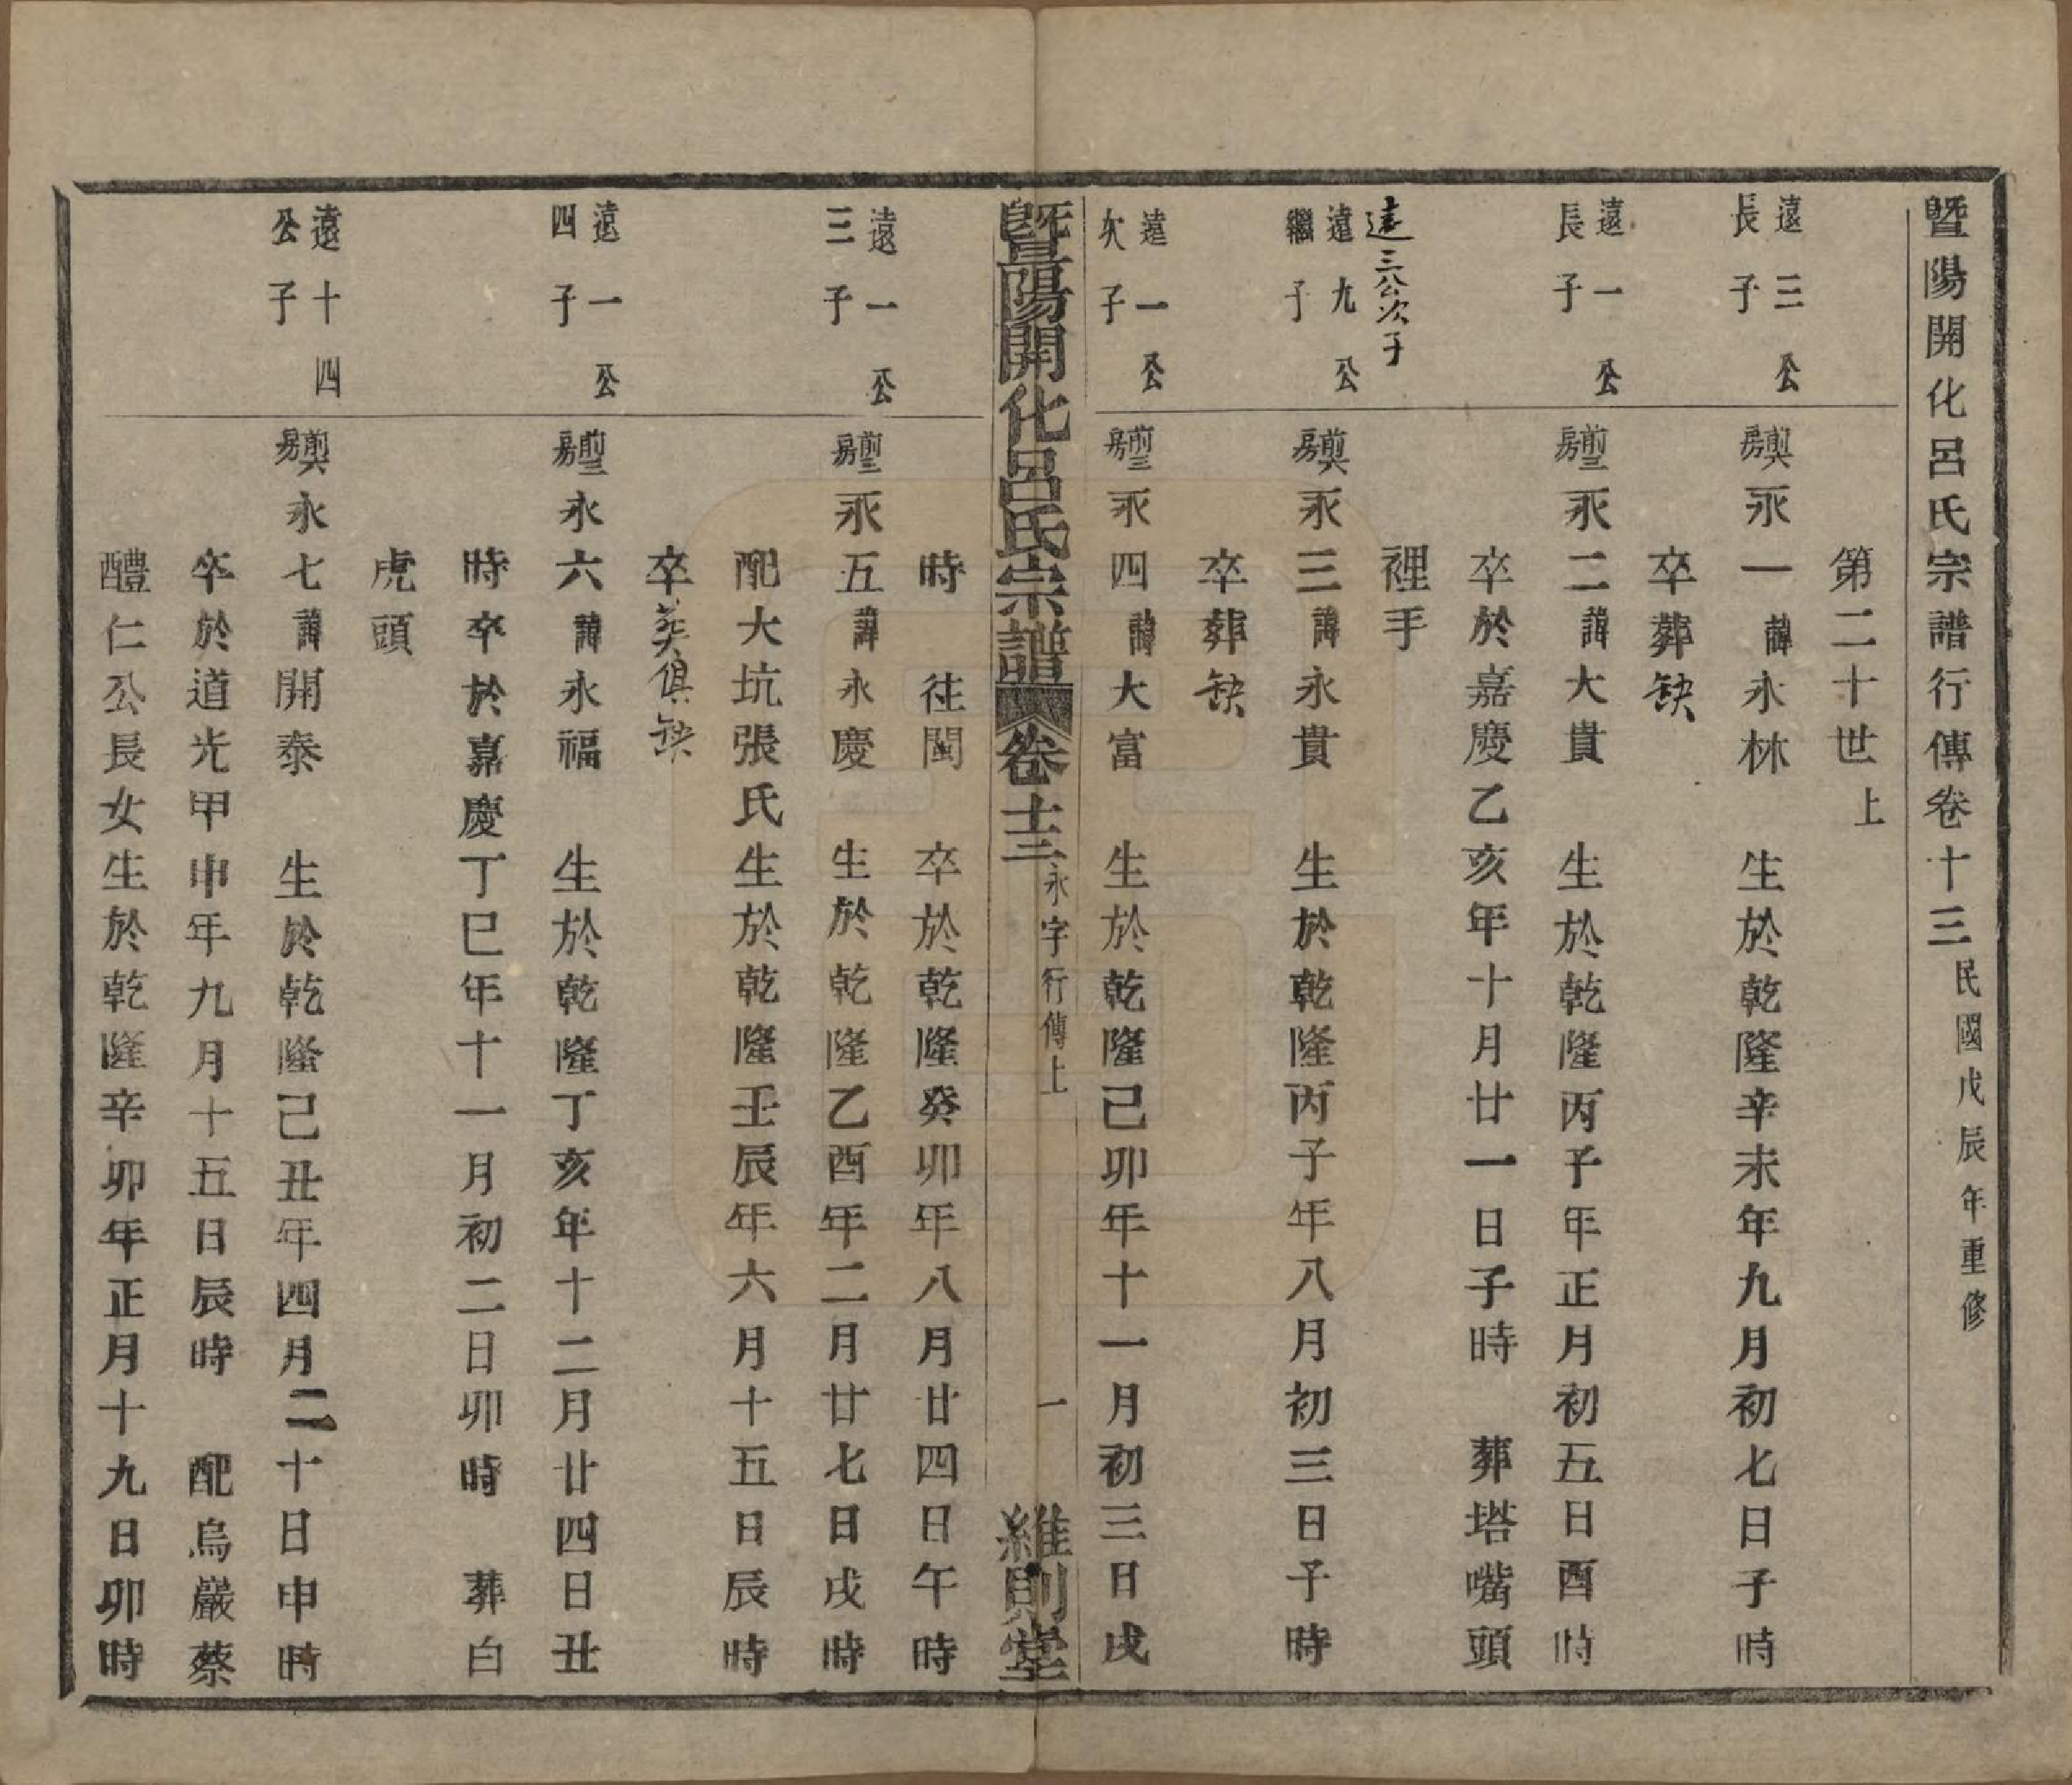 暨陽開化呂氏宗譜行傳卷十三 民國戊辰年重修
第二十世上
遠三公
長子
永一 諱永林 生於乾隆辛未年九月初七日子時
卒葬缺
遠一公
長子
永二 諱大貴 生於乾隆丙子年正月初五日酉時
卒於嘉慶乙亥年十月廿一日子時 葬塔嘴頭
裡手
遠三公次子
遠九公
繼子
永三 諱永貴 生於乾隆丙子年八月初三日子時
卒葬缺
遠一公
次子
永四 諱大富 生於乾隆己卯年十一月初三日戌
暨陽開化呂氏宗譜 卷十三 永字行傳上 一 維則堂
時 往閩 卒於乾隆癸卯年八月廿四日午時
遠一公
三子
永五 諱永慶 生於乾隆乙酉年二月廿七日戌時
配大坑張氏生於乾隆壬辰年六月十五日辰時
卒葬俱缺
遠一公
四子
永六 諱永福 生於乾隆丁亥年十二月廿四日丑
時卒於嘉慶丁巳年十一月初二日卯時 葬白
虎頭
遠十四
公子
永七 諱開泰 生於乾隆己丑年四月二十日申時
卒於道光甲申年九月十五日辰時 配烏巖蔡
醴仁公長女生於乾隆辛卯年正月十九日卯時